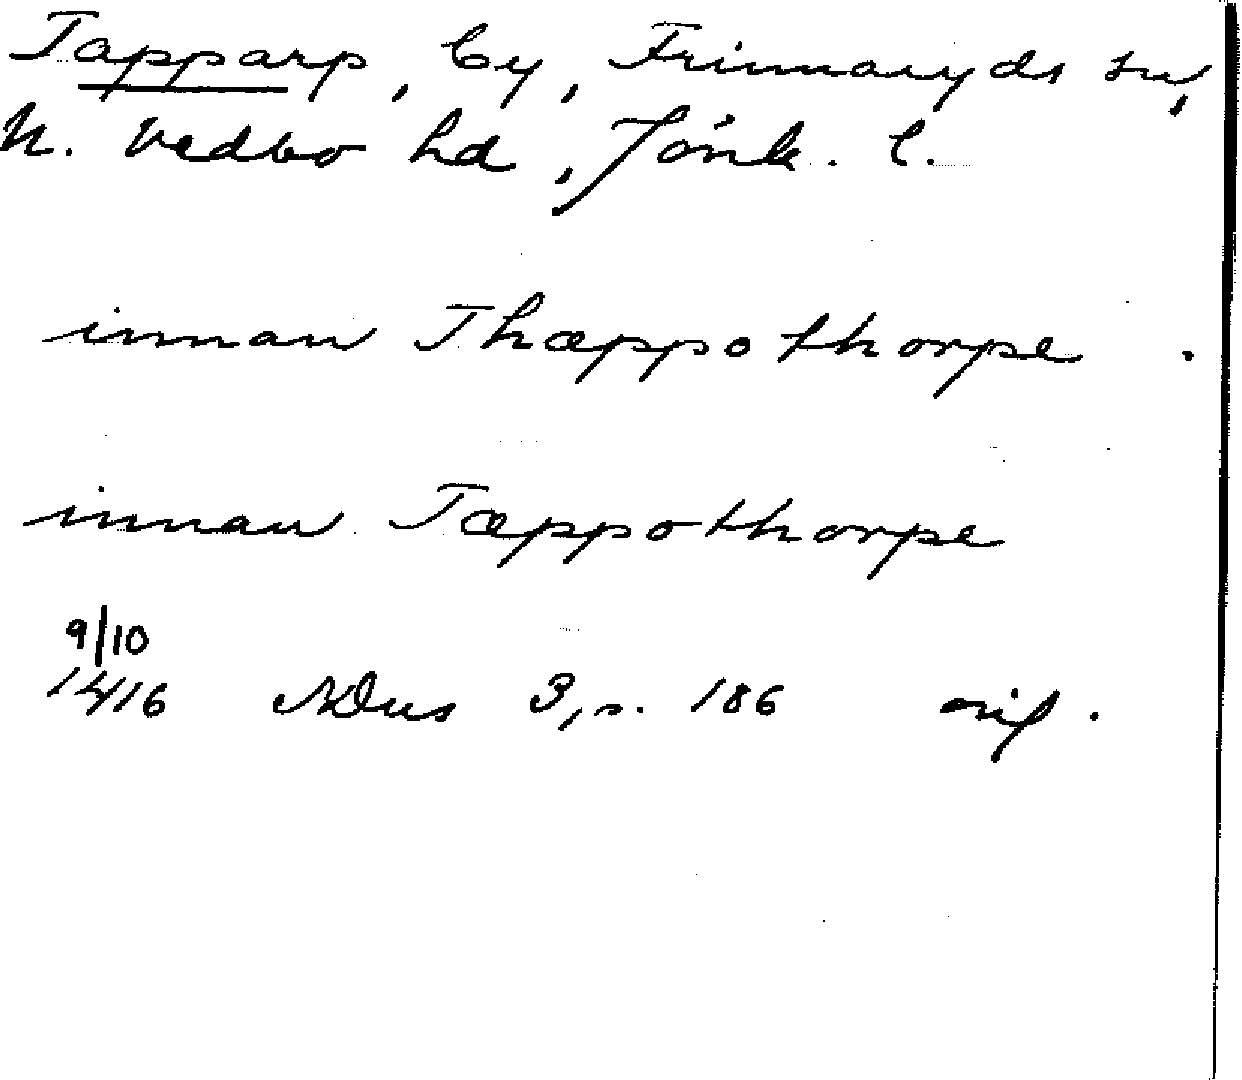 Tapparp, by, Frinnaryds sn,
N. Vedbo hd, Jönk. l.
innan Thæppothorpe .
innan Tæppothorpe
9/10
1416 NDus 3, s. 186 orig.